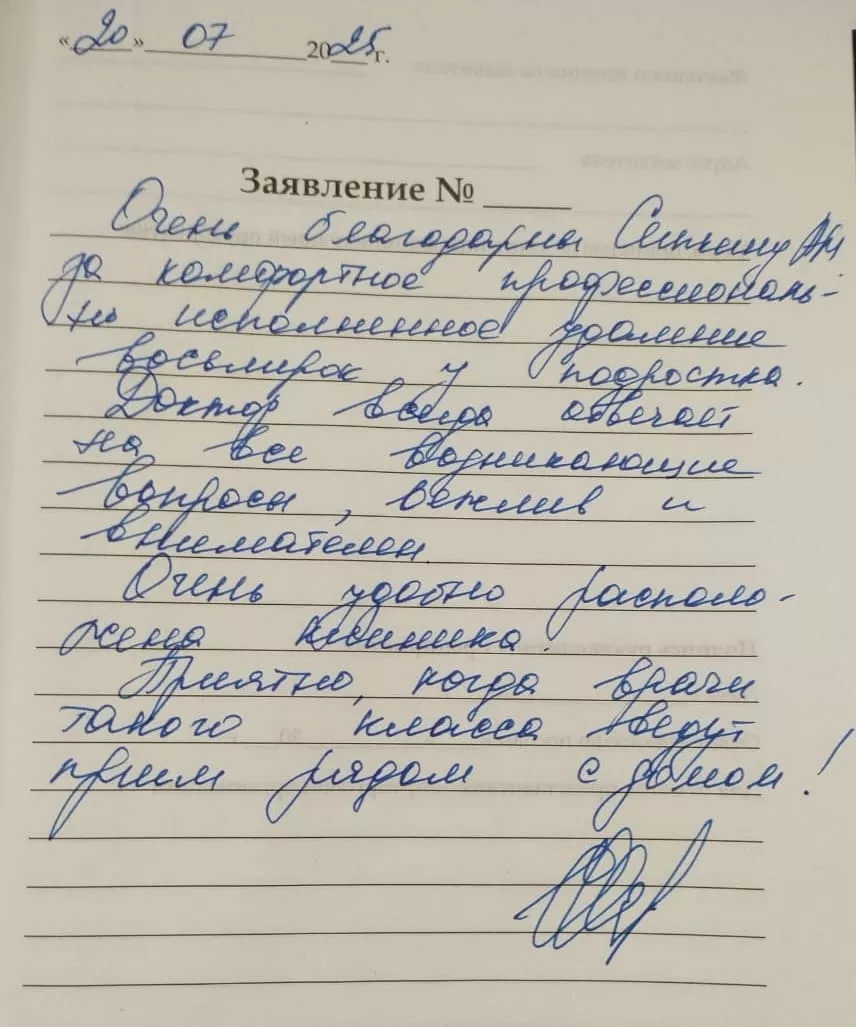 «20» 07 2025 г.
Заявление № ____
Очень благодарны Сипкину АМ
за комфортное профессиональ-
но исполненное удаление
восьмирок у подростка.
Доктор всегда отвечает
на все возникающие
вопросы, вежлив и
внимателен
Очень удобно располо-
жена клиника
Приятно, когда врачи
такого класса ведут
прием рядом с домом!